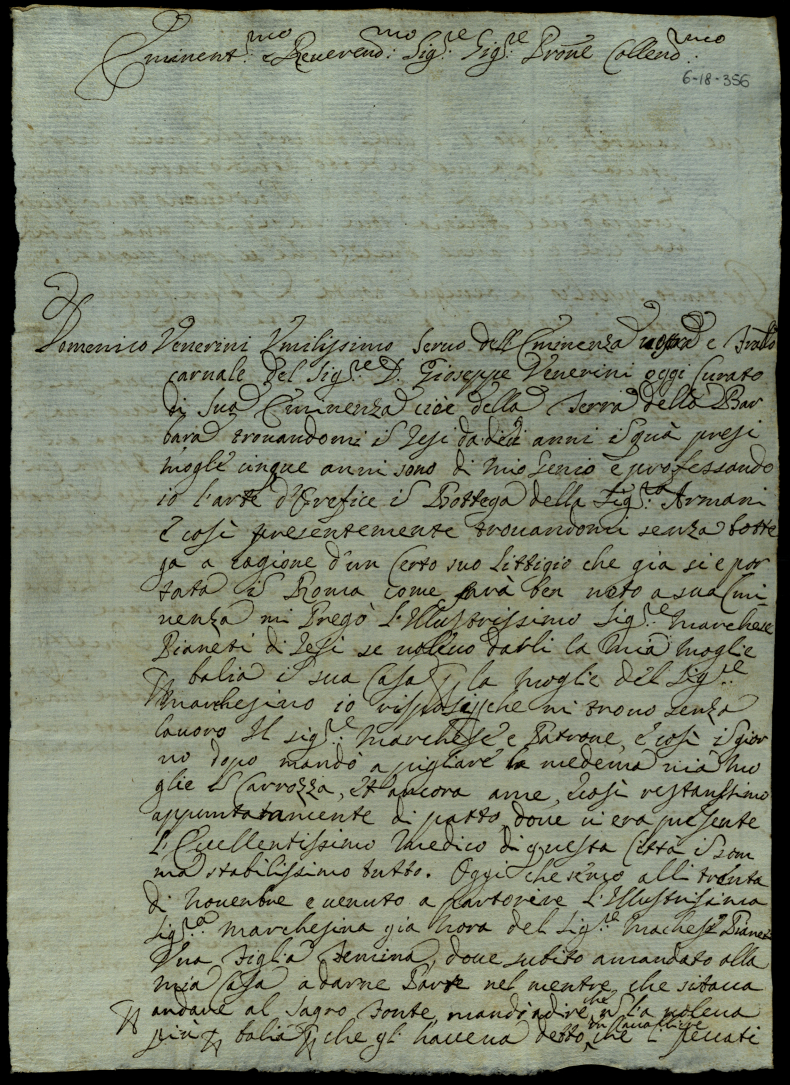 Eminent.mo e Reverend.mo Sig.re Sig.re Prone Collend.mo
6-18-356
Domenico Venerini Umilissimo Seruo dell Eminenza e
carnale del Sig.re D. Gioseppe Venerini oggi Curato
di Sua Eminenza cioè della Serra della Bar
bara trouandomi Jesi da dieci anni quà presi
mogle cinque anni sono di mio Genio e professando
io l'arte d'Orefice Bottega della Sig.ra Armani
e così presentemente trouandomi senza botte
ga a cagione d'un Certo suo Littigio che già si e por
tata Roma come sarà ben noto a sua Emi-
nenza mi Pregò L'Illustrissimo Sig.re Marchese
Pianeti di Jesi se uoleuo darli la Mia moglie
balia sua Casa la moglie del Sig.re
Marchesino io risposi che mi trouo senza
lauoro Il sig.re Marchese e Patrone, e così gior
no dopo mandò a pigliare la medema mia mo
glie Carrozza, et ancora ame, e così restassimo
appuntatamente di patto, doue ui era presente
L'Eccellentissimo Medico di questa Città som
ma stabilissimo tutto. Oggi che semo alli trenta
di Nouenbre e uenuto a partorire L'Illustrissima
Sig.ra Marchesina già Nora del Sig.re Machese Pianeti
Una figlia femina, doue subito amandato alla
mia Casa adarne Parte nel mentre che si
andaua al Sagro fonte, mandò adire, che la uoleua
più balia che gl'haueua detto che i peccati